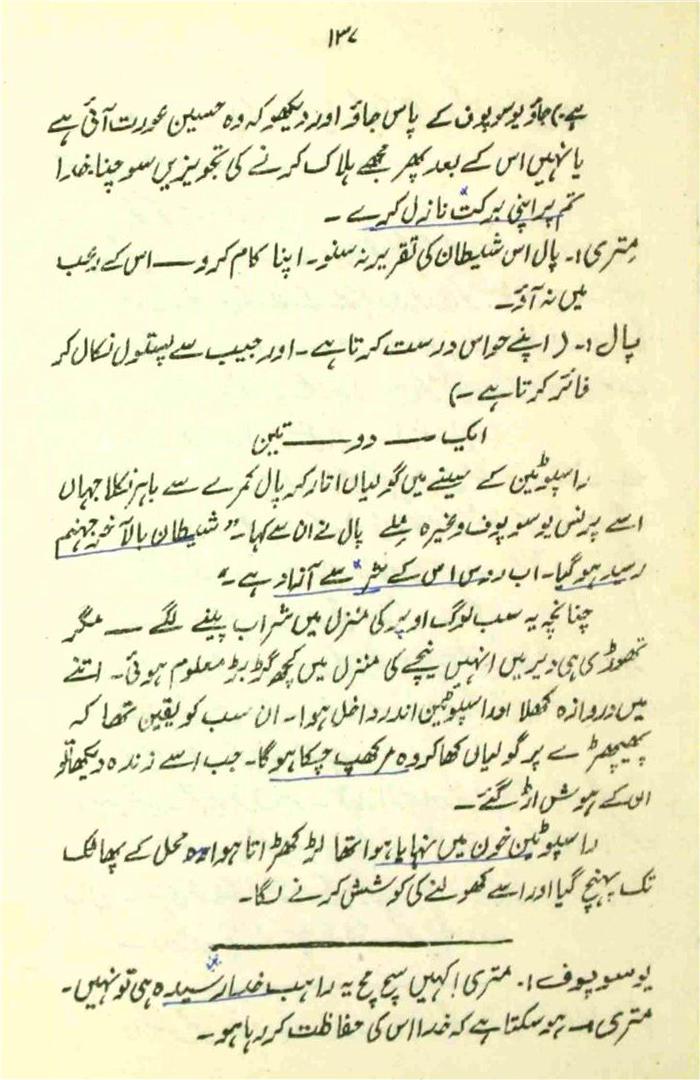 ۱۳۷
ہے۔) جاؤ یوسوپوف کے پاس جاؤ اور دیکھو کہ وہ حسین عورت آئی ہے
یا نہیں اس کے بعد پھر مجھے ہلاک کرنے کی تجویزیں سوچنا۔ خدا
تم پر اپنی برکت نازل کرے ۔
متری ۱۔ پال اس شیطان کی تقریر نہ سنو۔ اپنا کام کرو — اس کے رعب
میں نہ آؤ۔
پال ۱۔ ( اپنے حواس درست کرتا ہے ۔ اور جیب سے پستول نکال کر
فائر کرتا ہے ۔)
ایک — دو — تین
راسپوٹین کے سینے میں گولیاں اتار کر پال کمرے سے باہر نکلا جہاں
اسے پرنس یوسوپوف وغیرہ ملے پال نے ان سے کہا۔ “ شیطان بالآخر جہنم
رسید ہو گیا۔ اب روس اس کے شر سے آزاد ہے ۔”
چنانچہ یہ سب لوگ اوپر کی منزل میں شراب پینے لگے — مگر
تھوڑی ہی دیر میں انہیں نیچے کی منزل میں کچھ گڑ بڑ معلوم ہوئی۔ اتنے
میں دروازہ کھلا اور راسپوٹین اندر داخل ہوا۔ ان سب کو یقین تھا کہ
پھیپھڑے پر گولیاں کھا کر وہ مر کھپ چکا ہو گا۔ جب اسے زندہ دیکھا تو
ان کے ہوش اڑ گئے ۔
راسپوٹین خون میں نہایا ہوا تھا لڑکھڑاتا ہوا وہ محل کے پھاٹک
تک پہنچ گیا اور اسے کھولنے کی کوشش کرنے لگا۔
یوسوپوف ۱۔ متری! کہیں سچ مچ یہ راہب خدا رسیدہ ہی تو نہیں۔
متری ۱۔ ہو سکتا ہے کہ خدا اس کی حفاظت کر رہا ہو ۔